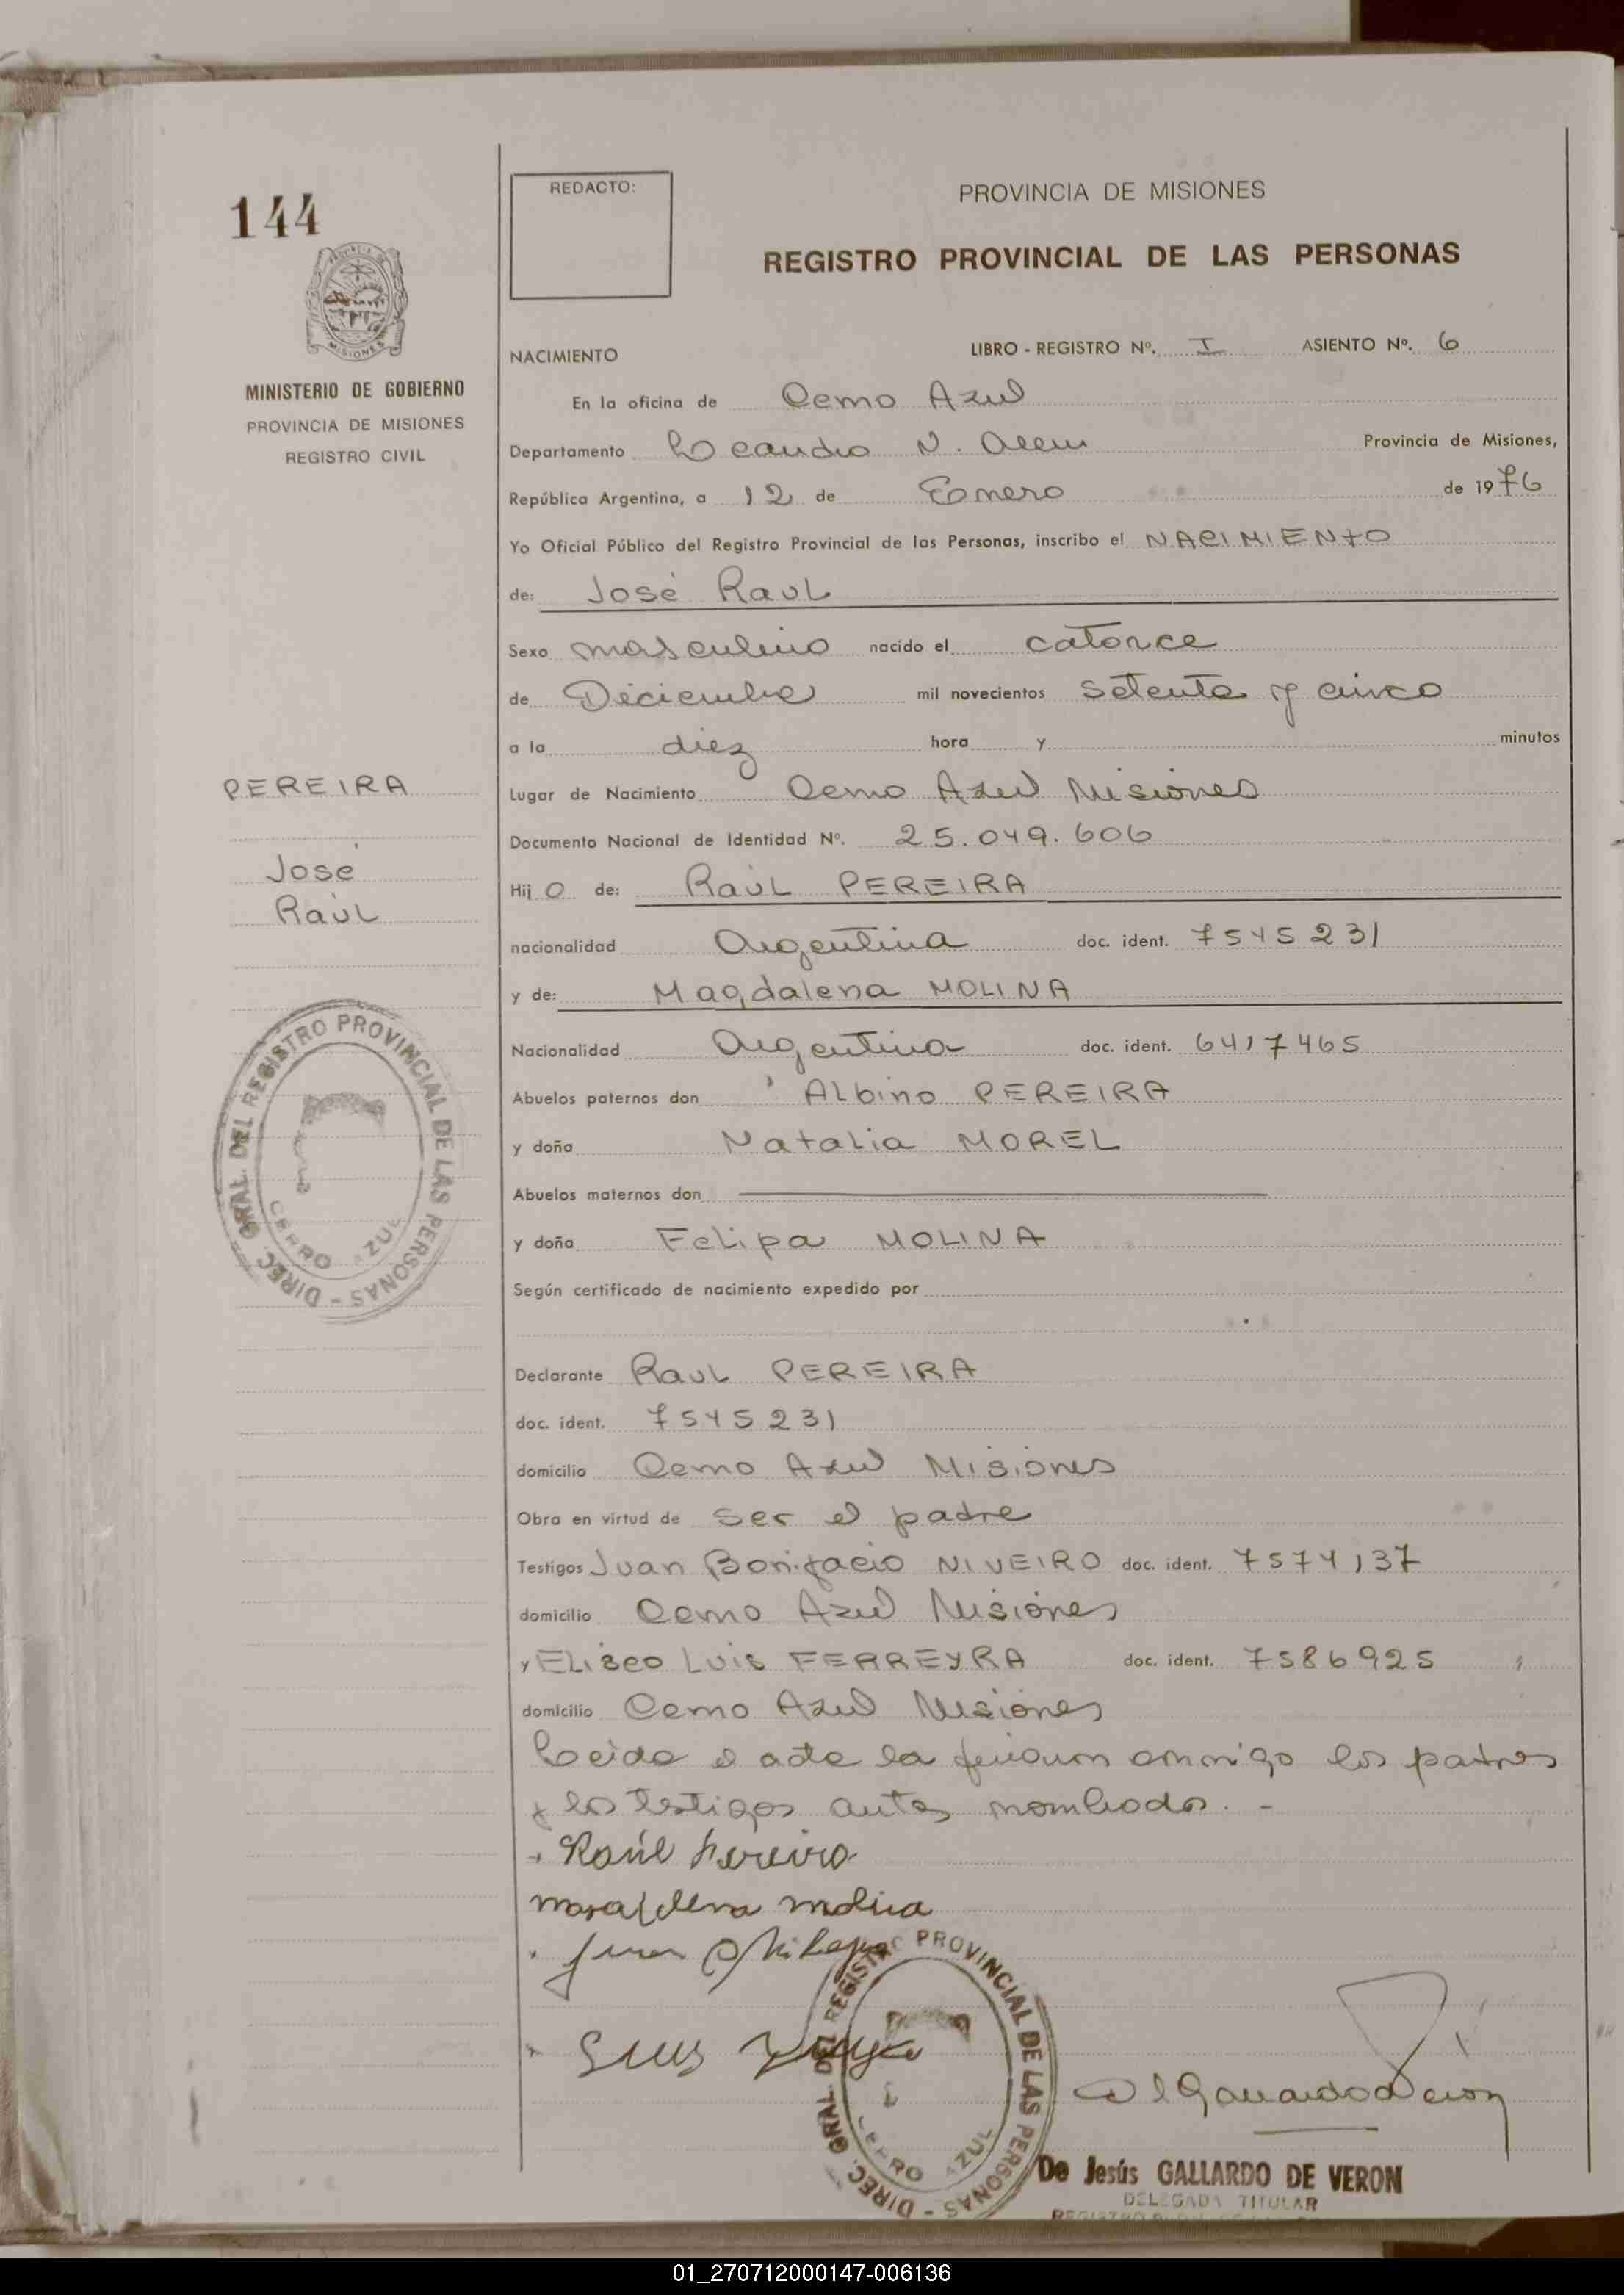 144
REDACTO:
PROVINCIA DE MISIONES
REGISTRO PROVINCIAL DE LAS PERSONAS
MISIONES
MINISTERIO DE GOBIERNO
PROVINCIA DE MISIONES
REGISTRO CIVIL
NACIMIENTO LIBRO - REGISTRO Nº. I ASIENTO Nº. 6
En la oficina de Cerro Azul
Departamento Leandro N. Alem Provincia de Misiones,
República Argentina, a 12 de Enero de 1976
Yo Oficial Público del Registro Provincial de las Personas, inscribo el NACIMIENTO
de: José Raul
Sexo masculino nacido el catorce
de Diciembre mil novecientos setenta y cinco
a la diez hora y minutos
PEREIRA
José
Raúl
Lugar de Nacimiento Cerro Azul Misiones
Documento Nacional de Identidad Nº. 25.049.606
Hijo de: Raúl PEREIRA
nacionalidad Argentina doc. ident. 7545231
y de: Magdalena MOLINA
Nacionalidad Argentina doc. ident. 6417465
Abuelos paternos don Albino PEREIRA
y doña Natalia MOREL
Abuelos maternos don
y doña Felipa MOLINA
DIREC. GRAL. DEL REGISTRO PROVINCIAL DE LAS PERSONAS -
CERRO AZUL
Según certificado de nacimiento expedido por
Declarante Raul PEREIRA
doc. ident. 7545231
domicilio Cerro Azul Misiones
Obra en virtud de ser el padre
Testigos Juan Bonifacio NIVEIRO doc. ident. 7574137
domicilio Cerro Azul Misiones
y Eliseo Luis FERREYRA doc. ident. 7586925
domicilio Cerro Azul Misiones
Leida el acta la firman conmigo los padres
y los testigos antes nombrados. -
Raúl Pereira
molina
DIREC. GRAL. DEL REGISTRO PROVINCIAL DE LAS PERSONAS -
CERRO AZUL
De Jesús GALLARDO DE VERON
DELEGADA TITULAR
01_270712000147-006136